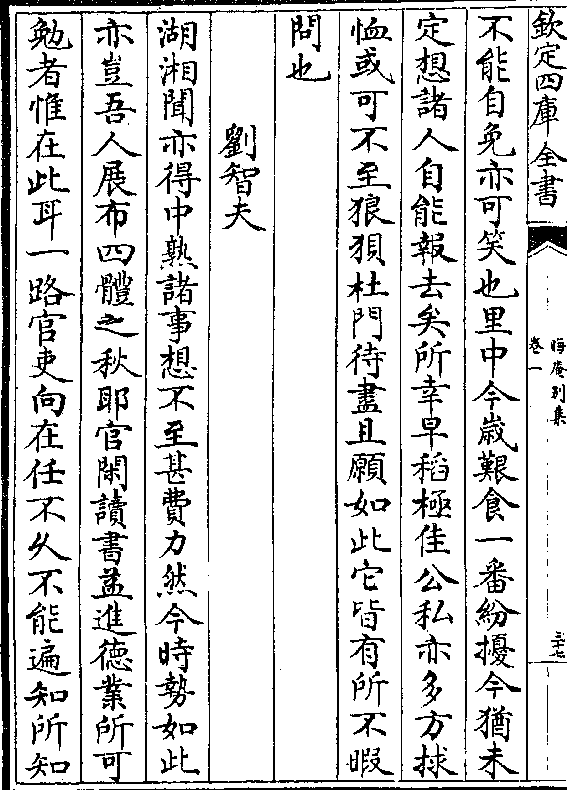 欽定四庫全書
晦庵别集
卷一
三十七
不能自免亦可笑也里中今嵗艱食一番紛擾今猶未
定想諸人自能報去矣所幸早稻極佳公私亦多方捄
恤或可不至狼狽杜門待盡且願如此它皆有所不暇
問也
劉智夫
湖湘聞亦得中熟諸事想不至甚費力然今時勢如此
亦豈吾人展布四體之秋耶官閑讀書益進徳業所可
勉者惟在此耳一路官吏向在任不久不能遍知所知